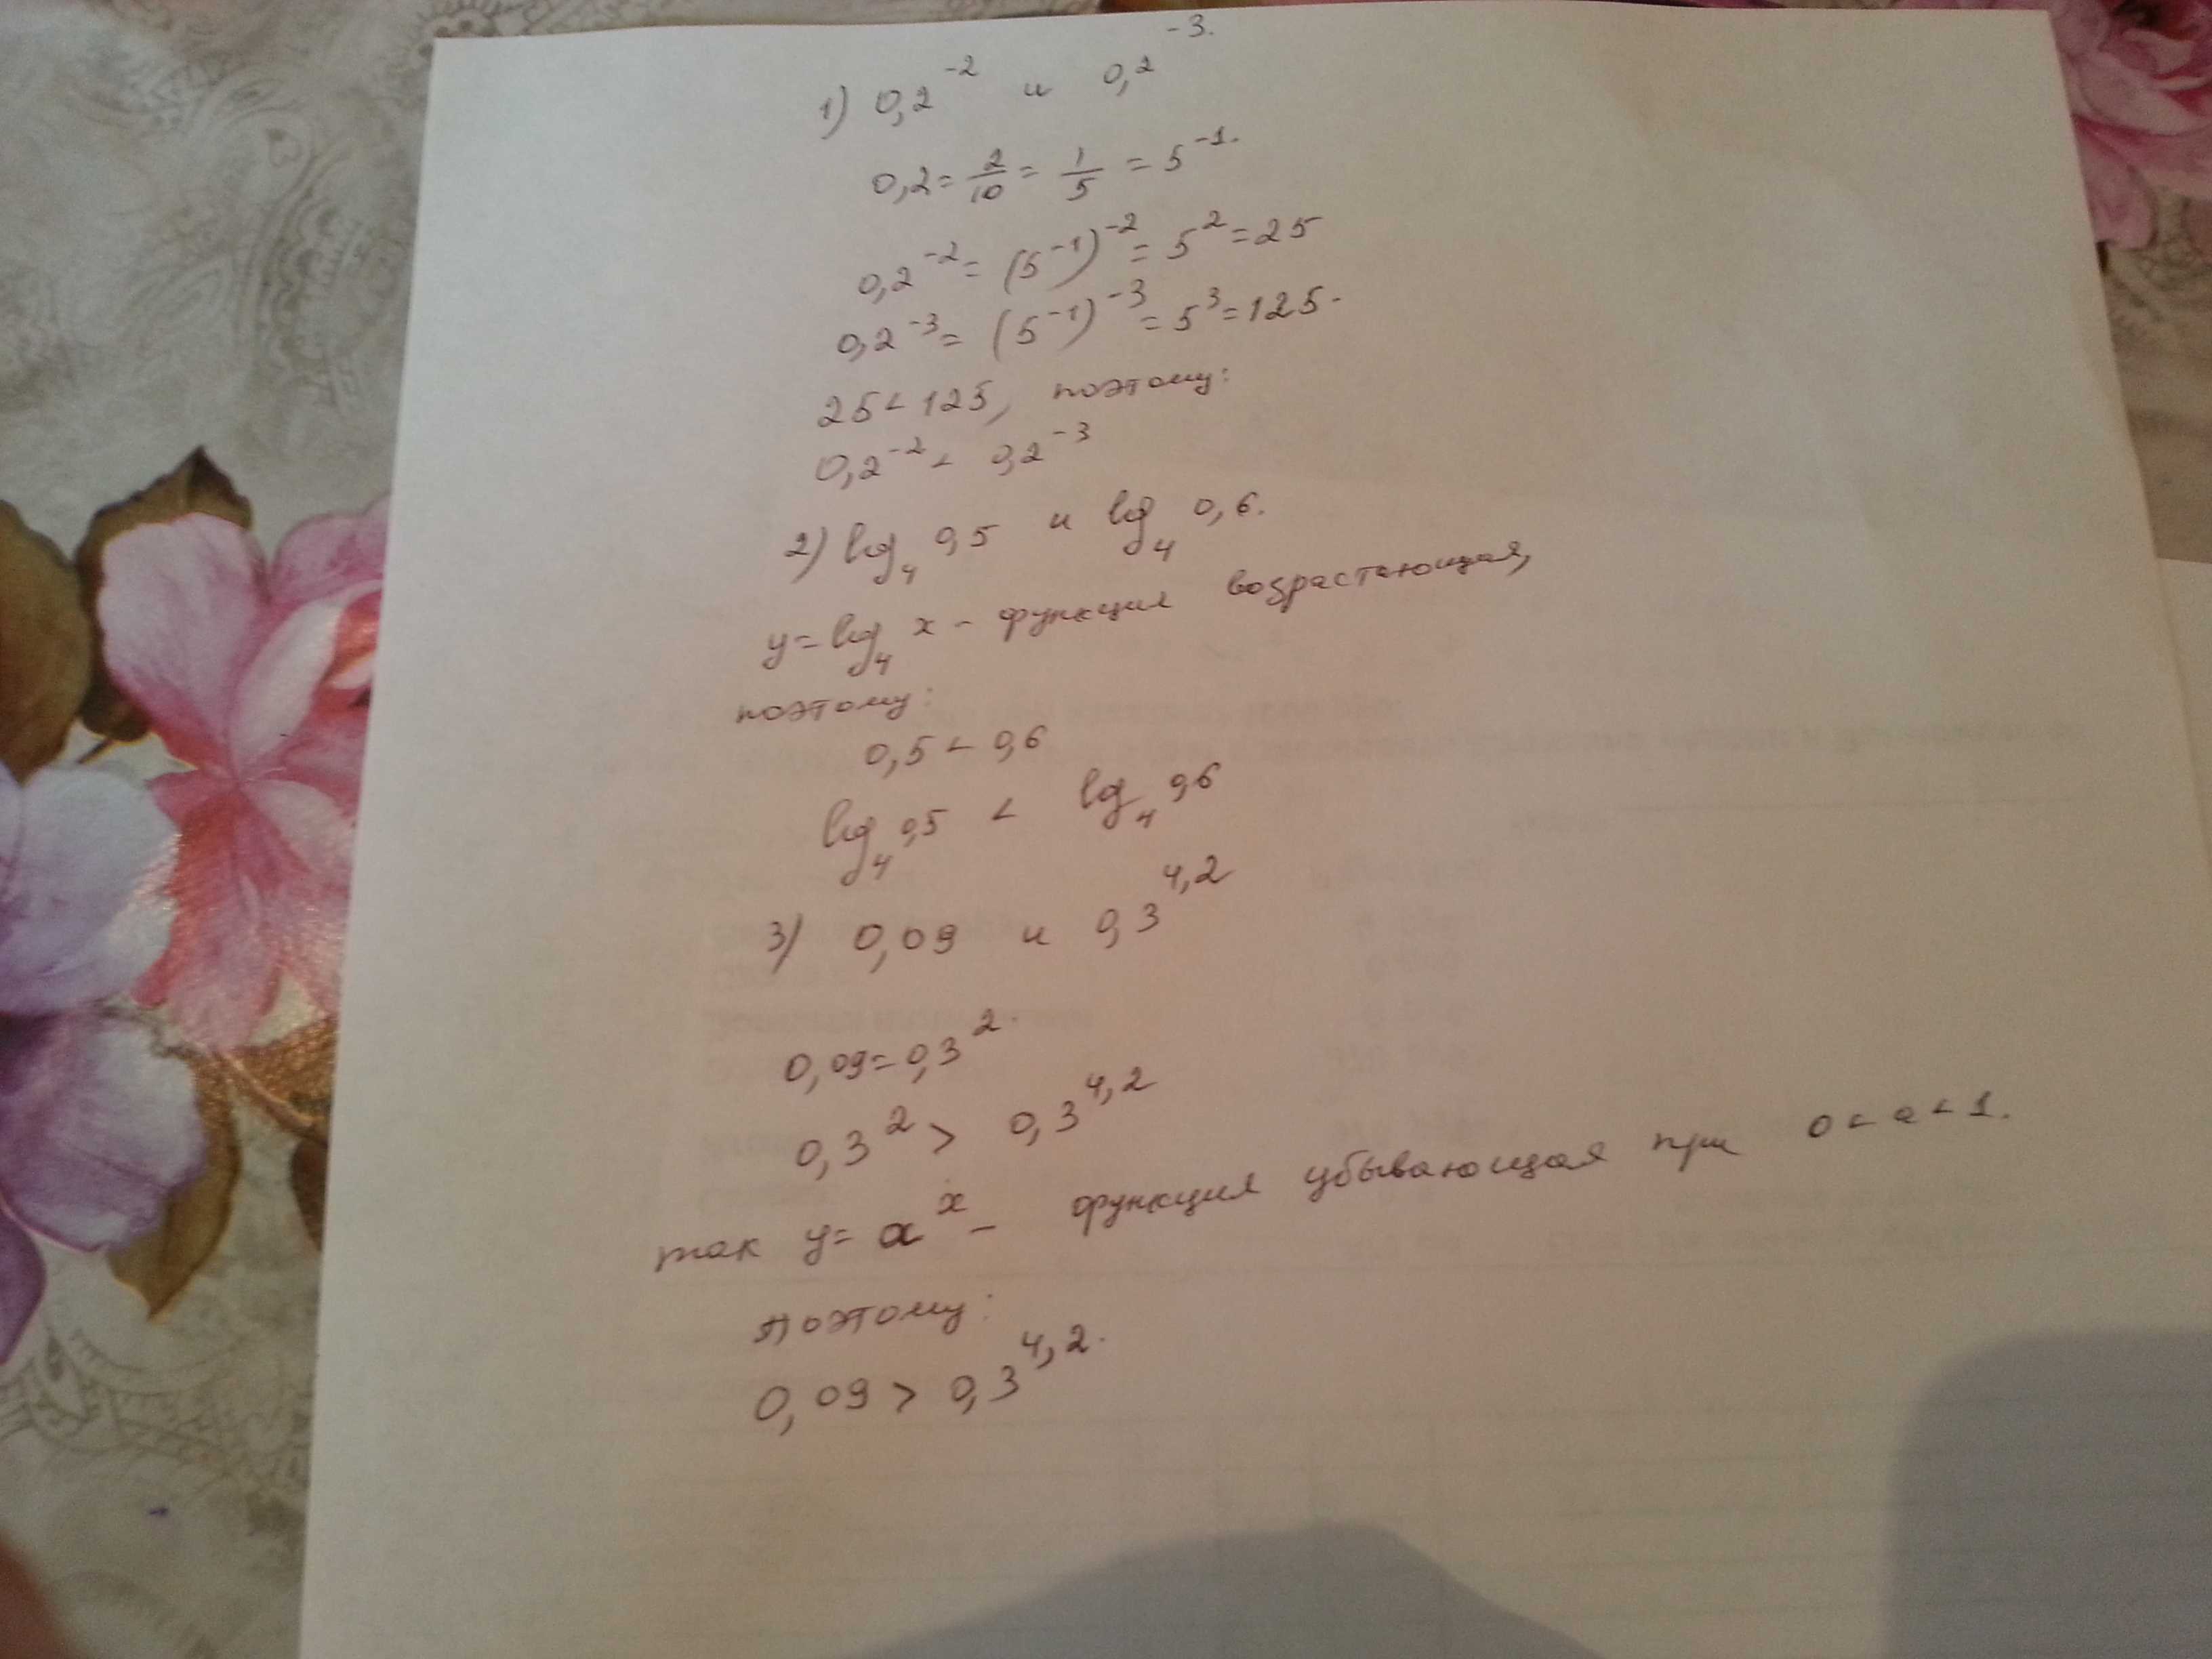 1) 0,2⁻² и 0,2⁻³.
0,2 = 2/10 = 1/5 = 5⁻¹.
0,2⁻² = (5⁻¹)⁻² = 5² = 25
0,2⁻³ = (5⁻¹)⁻³ = 5³ = 125.
25 < 125, поэтому:
0,2⁻² < 0,2⁻³
2) log₄ 0,5 и log₄ 0,6.
y = log₄ x - функция возрастающая,
поэтому:
0,5 < 0,6
log₄ 0,5 < log₄ 0,6
3) 0,09 и 0,3^4,2
0,09 = 0,3².
0,3² > 0,3^4,2
так y = a^x - функция убывающая при 0 < a < 1.
поэтому:
0,09 > 0,3^4,2.